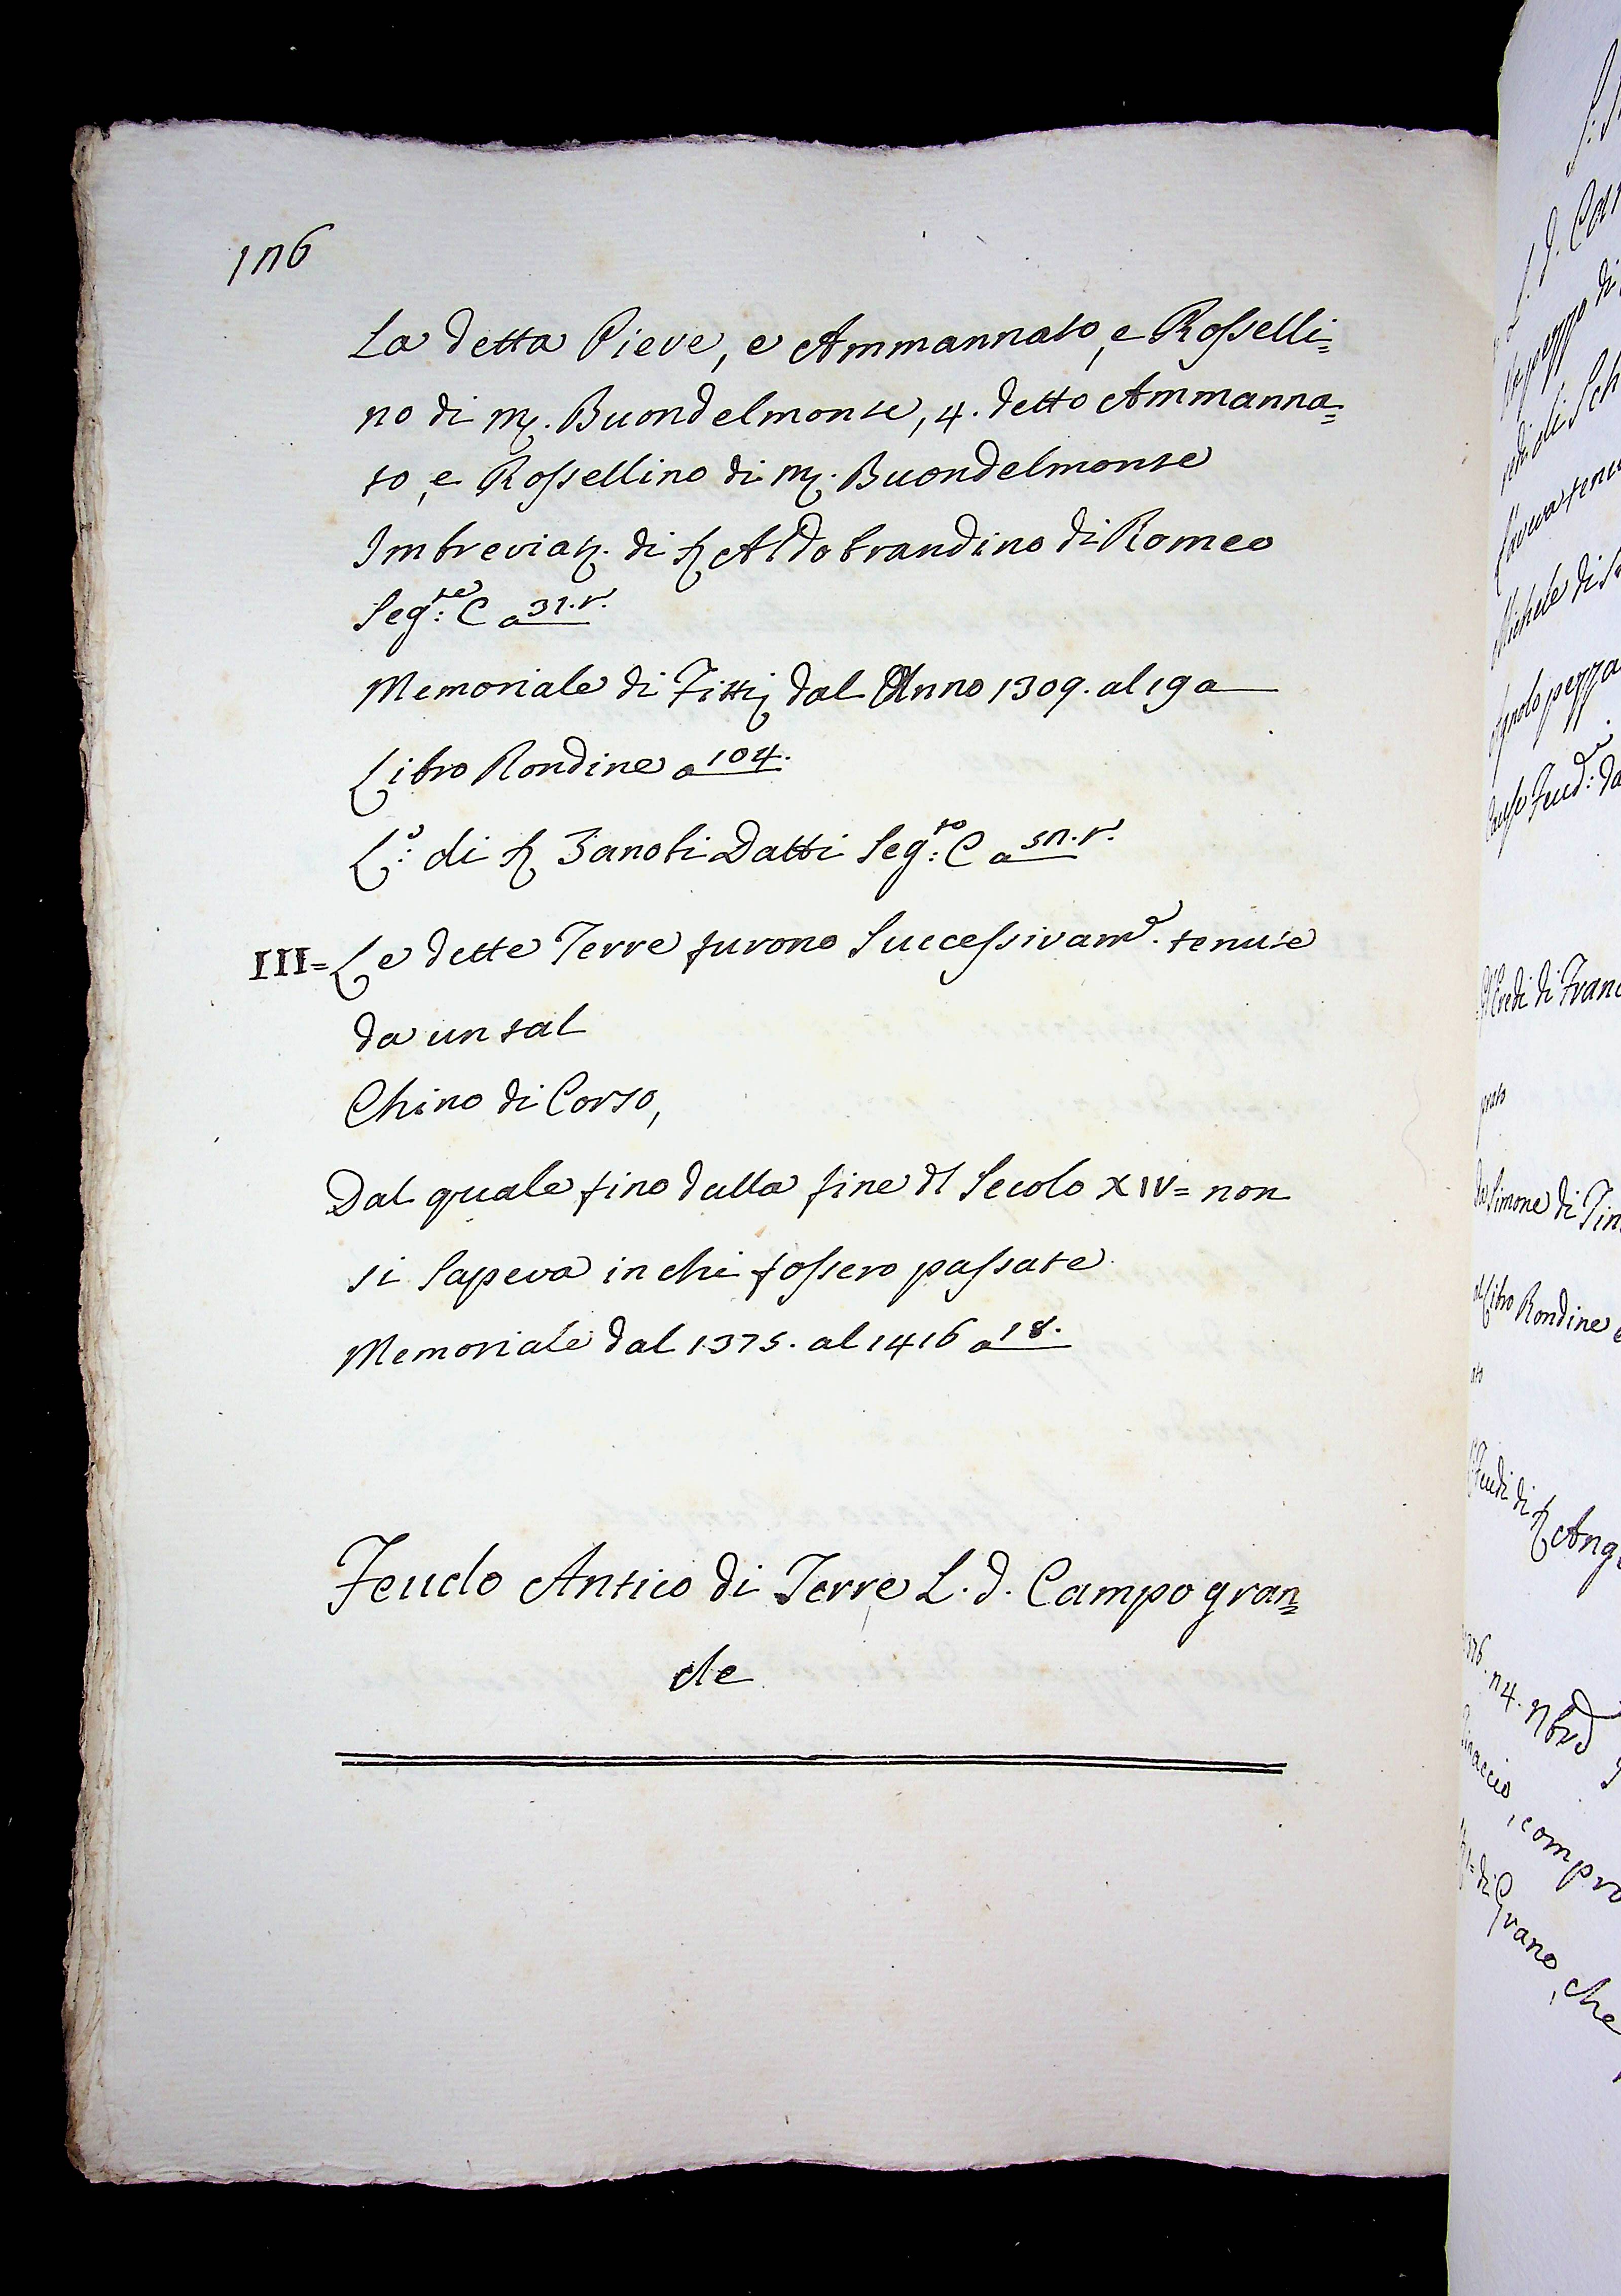 176
La detta Pieve, e Ammannato, e Rosselli=
no di M. Buondelmonte, 4. detto Ammanna=
to, e Rossellino di M. Buondelmonte
Imbreviaz. di S. Aldobrandino di Romeo
Seg:te C a 31. r.
Memoriale di Fitti dal Anno 1309. al 19 a
Libro Rondine a 104.
L:o di S. Zanobi Datti Seg:to C a 57. r.
III= Le dette Terre furono Successivam.e tenute
da un tal
Chino di Corso,
Dal quale fino dalla fine dl Secolo XIV= non
si Sapeva in chi fossero passate
Memoriale dal 1375. al 1416 a 18.
Feudo Antico di Terre L. d. Campo gran=
de
di Sch
Michele di
Eredi di Franc
Simone di Tin
Libro Rondine
Feudi di S. Ang
74. 9bre
, compro
di Grano, che